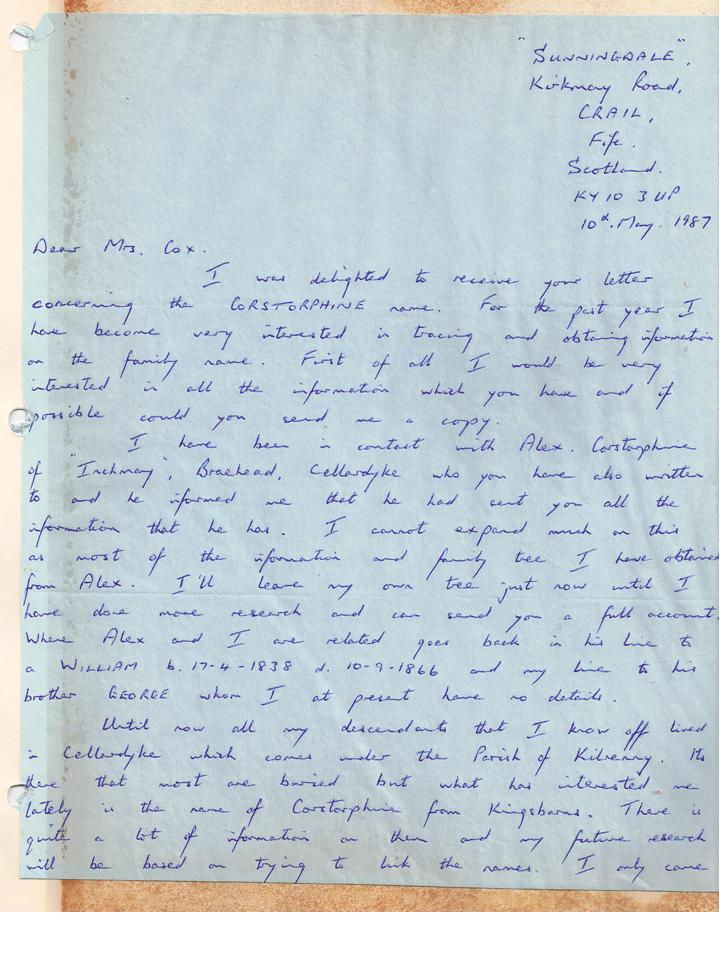 "SUNNINGDALE",
Kirkmay Road,
CRAIL,
Fife.
Scotland.
KY10 3UP
10th. May. 1987
Dear Mrs. Cox.
I was delighted to receive your letter
concerning the CORSTORPHINE name. For the past year I
have become very interested in tracing and obtaining information
on the family name. First of all I would be very
interested in all the information which you have and if
possible could you send me a copy.
I have been in contact with Alex. Corstorphine
of "Inchmay", Braehead, Cellardyke who you have also written
to and he informed me that he had sent you all the
information that he has. I cannot expand much on this
as most of the information and family tree I have obtained
from Alex. I'll leave my own tree just now until I
have done more research and can send you a full account.
Where Alex and I are related goes back in his line to
a WILLIAM b. 17-4-1838 d. 10-9-1866 and my line to his
brother GEORGE whom I at present have no details.
Until now all my descendants that I know off lived
in Cellardyke which comes under the Parish of Kilrenny. Its
there that most are buried but what has interested me
lately is the name of Corstorphine from Kingsbarns. There is
quite a lot of information on them and my future research
will be based on trying to link the names. I only came